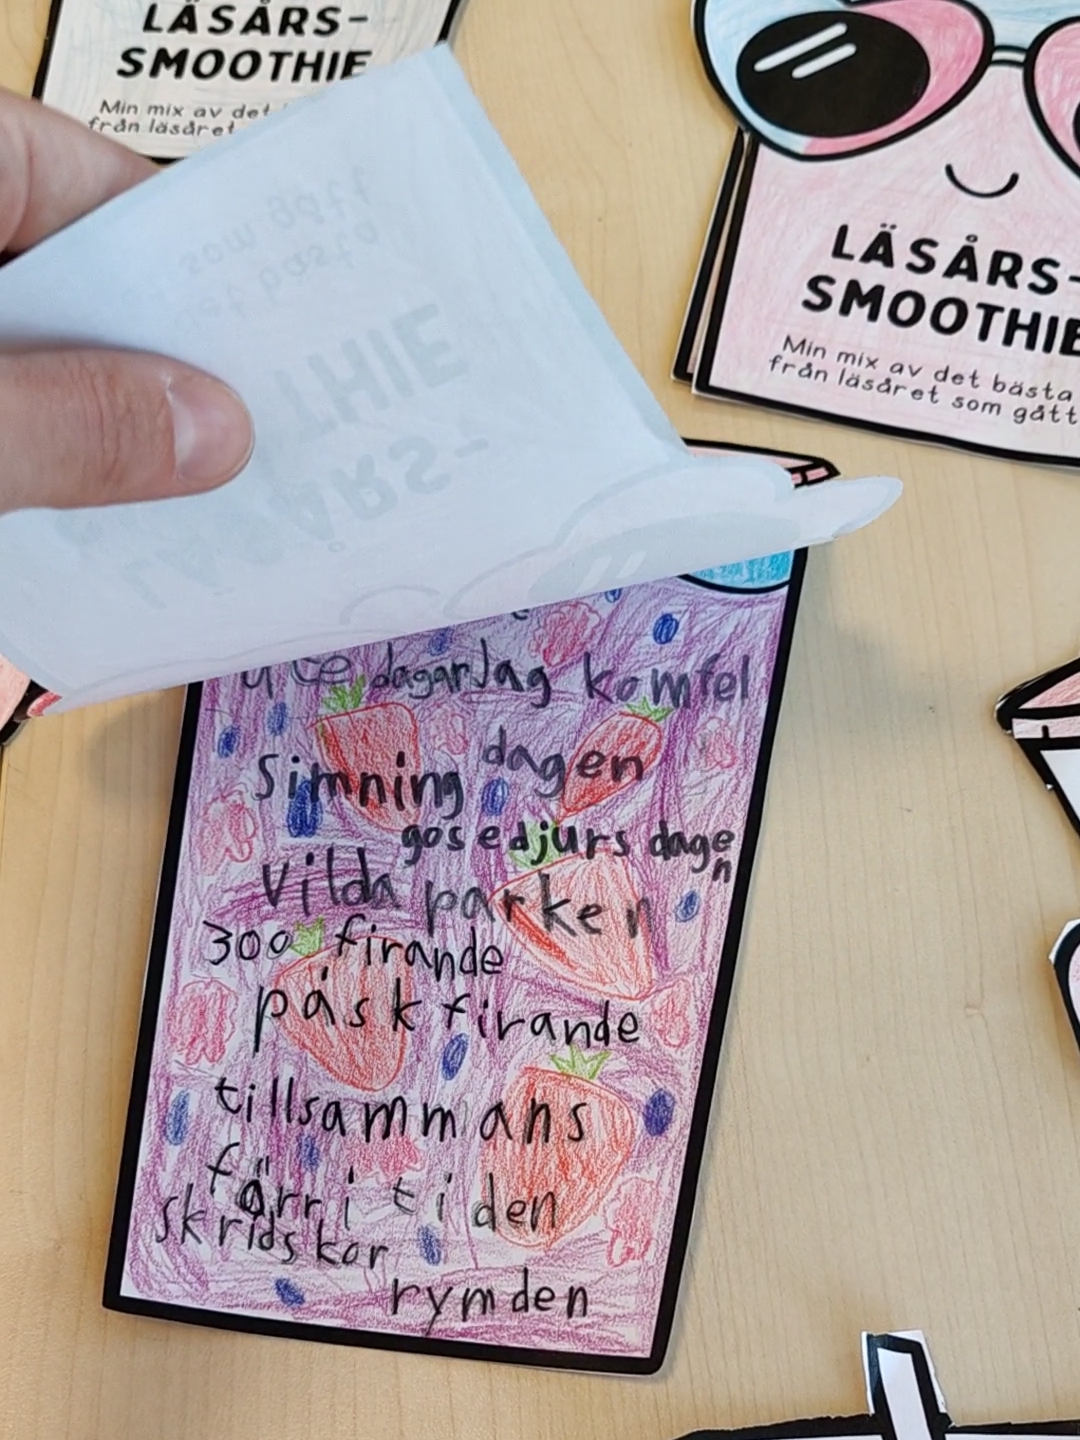 LÄSÅRS-
SMOOTHIE
Min mix av det
från läsåret
LÄSÅRS-
SMOOTHIE
Min mix av det bästa
från läsåret som gått
ute dagar Jag komfel
Simning dagen
gosedjurs dagen
Vilda parken
300 firande
påsk firande
tillsammans
förr i tiden
skridskor
rymden